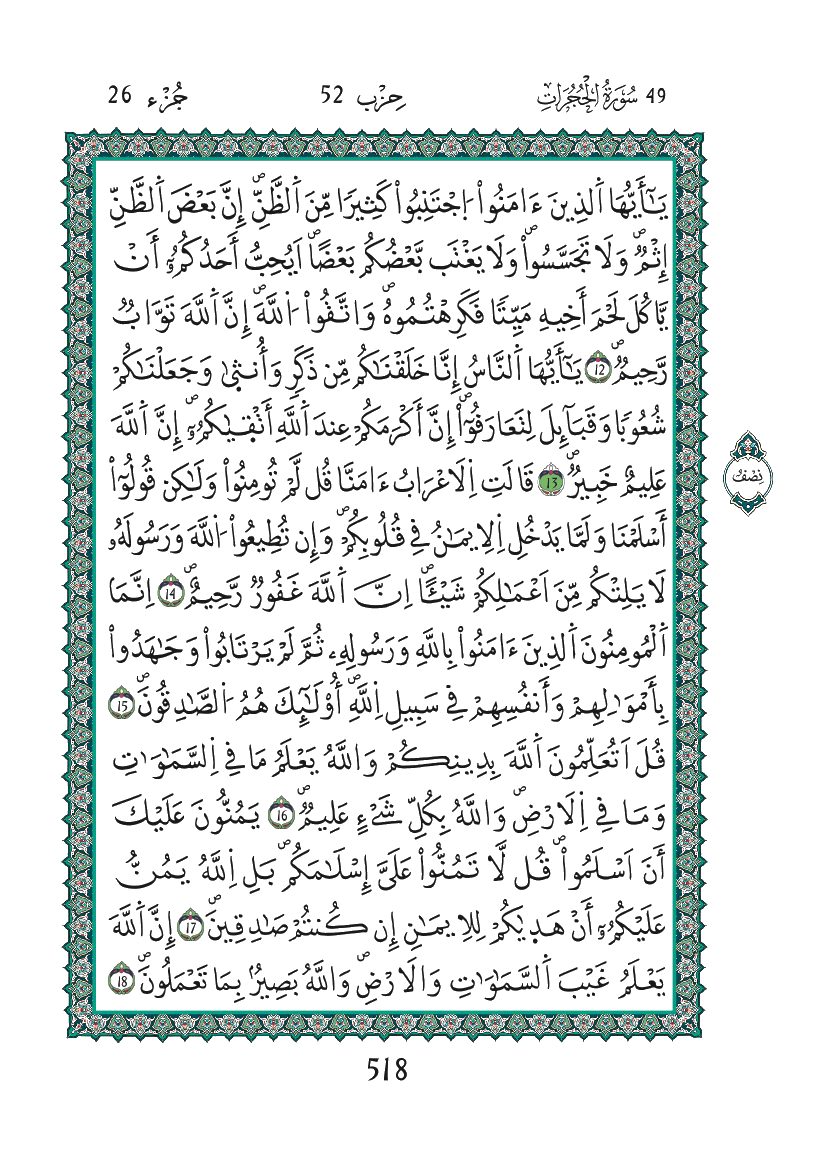 49 سُورَةُ الْحُجُرَاتِ حِزْب 52 جُزْء 26
يَٰٓأَيُّهَا اَ۬لذِينَ ءَامَنُواْ اُ۪جْتَنِبُواْ كَثِيراٗ مِّنَ اَ۬لظَّنِّۖ إِنَّ بَعْضَ اَ۬لظَّنِّ
إِثْمٞۖ وَلَا تَجَسَّسُواْۖ وَلَا يَغْتَب بَّعْضُكُم بَعْضاًۖ اَيُحِبُّ أَحَدُكُمُۥٓ أَنْ
يَّاكُلَ لَحْمَ أَخِيهِ مَيِّتاٗ فَكَرِهْتُمُوهُۖ وَاتَّقُواْ اُ۬للَّهَۖ إِنَّ اَ۬للَّهَ تَوَّابٞ
رَّحِيمٞۖ 12 يَٰٓأَيُّهَا اَ۬لنَّاسُ إِنَّا خَلَقْنَٰكُم مِّن ذَكَرٖ وَأُنث۪يٰ وَجَعَلْنَٰكُمْ
شُعُوباٗ وَقَبَآئِلَ لِتَعَارَفُوٓاْۖ إِنَّ أَكْرَمَكُمْ عِندَ اَ۬للَّهِ أَتْق۪يٰكُمُۥٓۖ إِنَّ اَ۬للَّهَ
عَلِيمٌ خَبِيرٞۖ 13 قَالَتِ اِ۬لَاعْرَابُ ءَامَنَّا قُل لَّمْ تُومِنُواْ وَلَٰكِن قُولُوٓاْ
نِصْف
أَسْلَمْنَا وَلَمَّا يَدْخُلِ اِ۬لِايمَٰنُ فِي قُلُوبِكُمْۖ وَإِن تُطِيعُواْ اُ۬للَّهَ وَرَسُولَهُۥ
لَا يَلِتْكُم مِّنَ اَعْمَٰلِكُمْ شَيْـٔاًۖ اِنَّ اَ۬للَّهَ غَفُورٞ رَّحِيمٌۖ 14 اِنَّمَا
اَ۬لْمُومِنُونَ اَ۬لذِينَ ءَامَنُواْ بِاللَّهِ وَرَسُولِهِۦ ثُمَّ لَمْ يَرْتَابُواْ وَجَٰهَدُواْ
بِأَمْوَٰلِهِمْ وَأَنفُسِهِمْ فِي سَبِيلِ اِ۬للَّهِۖ أُوْلَٰٓئِكَ هُمُ اُ۬لصَّٰدِقُونَۖ 15
قُلَ اَتُعَلِّمُونَ اَ۬للَّهَ بِدِينِكُمْ وَاللَّهُ يَعْلَمُ مَا فِي اِ۬لسَّمَٰوَٰتِ
وَمَا فِي اِ۬لَارْضِۖ وَاللَّهُ بِكُلِّ شَےْءٍ عَلِيمٞۖ 16 يَمُنُّونَ عَلَيْكَ
أَنَ اَسْلَمُواْۖ قُل لَّا تَمُنُّواْ عَلَيَّ إِسْلَٰمَكُمۖ بَلِ اِ۬للَّهُ يَمُنُّ
عَلَيْكُمُۥٓ أَنْ هَد۪يٰكُمْ لِلِايمَٰنِ إِن كُنتُمْ صَٰدِقِينَۖ 17 إِنَّ اَ۬للَّهَ
يَعْلَمُ غَيْبَ اَ۬لسَّمَٰوَٰتِ وَالَارْضِۖ وَاللَّهُ بَصِيرُۢ بِمَا تَعْمَلُونَۖ 18
518